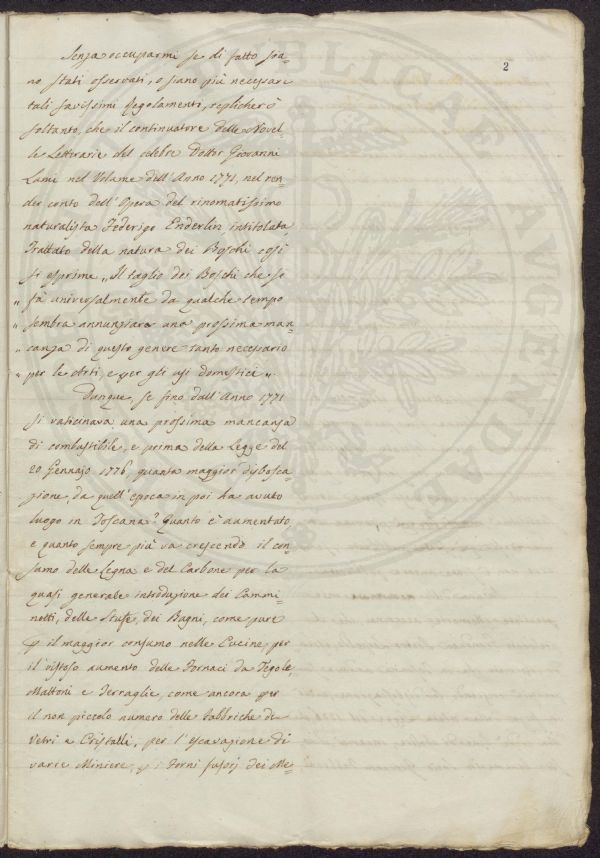 2
Senza occuparmi se di fatto sia=
no stati osservati, o siano più necessarj
tali savissimi Regolamenti, replicherò
soltanto, che il continuatore delle Novel=
le Letterarie del celebre Dottor Giovanni
Lami nel Volume dell'Anno 1771, nel ren=
der conto dell'Opera del rinomatissimo
naturalista Federigo Enderlin intitolata
Trattato della natura dei Boschi così
si esprime „ Il taglio dei Boschi che si
„ fà universalmente da qualche tempo
„ sembra annunziare una prossima man=
„ canza di questo genere tanto necessario
„ per le Arti, e per gli usi domestici „.
Dunque, se fino dall'Anno 1771
si vaticinava una prossima mancanza
di combustibile, e prima della Legge del
20 Gennajo 1776, quanto maggior disbosca=
zione, da quell'epoca in poi ha avuto
luogo in Toscana? Quanto è aumentato,
e quanto sempre più va crescendo il con=
sumo delle Legna e del Carbone per la
quasi generale introduzione dei Cammi=
netti, delle Stufe, dei Bagni, come pure
p il maggior consumo nelle Cucine, per
il vistoso aumento delle Fornaci da Tegole,
Mattoni e Terraglie, come ancora per
il non piccolo numero delle Fabbriche di
Vetri e Cristalli, per l'escavazione di
varie Miniere, p i Forni fusorj dei Me=
PUBLICAE